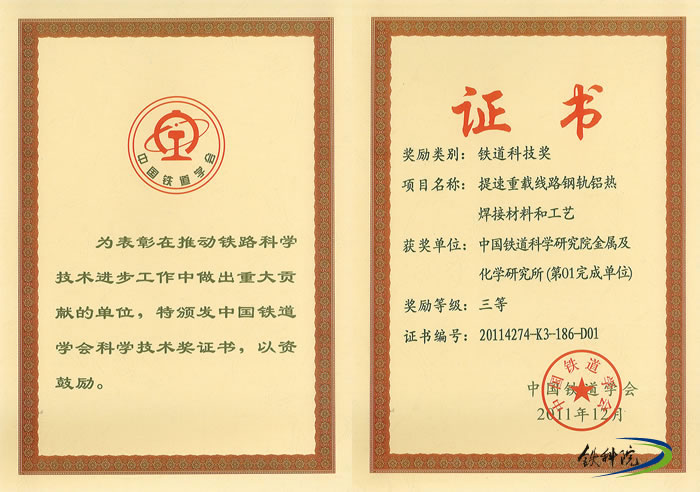 中国铁道学会
为表彰在推动铁路科学
技术进步工作中做出重大贡
献的单位，特颁发中国铁道
学会科学技术奖证书，以资
鼓励。
证书
奖励类别：铁道科技奖
项目名称：提速重载线路钢轨铝热
焊接材料和工艺
获奖单位：中国铁道科学研究院金属及
化学研究所(第01完成单位)
奖励等级：三等
证书编号：20114274-K3-186-D01
中国铁道学会
中国铁道学会
2011年12月
铁科院